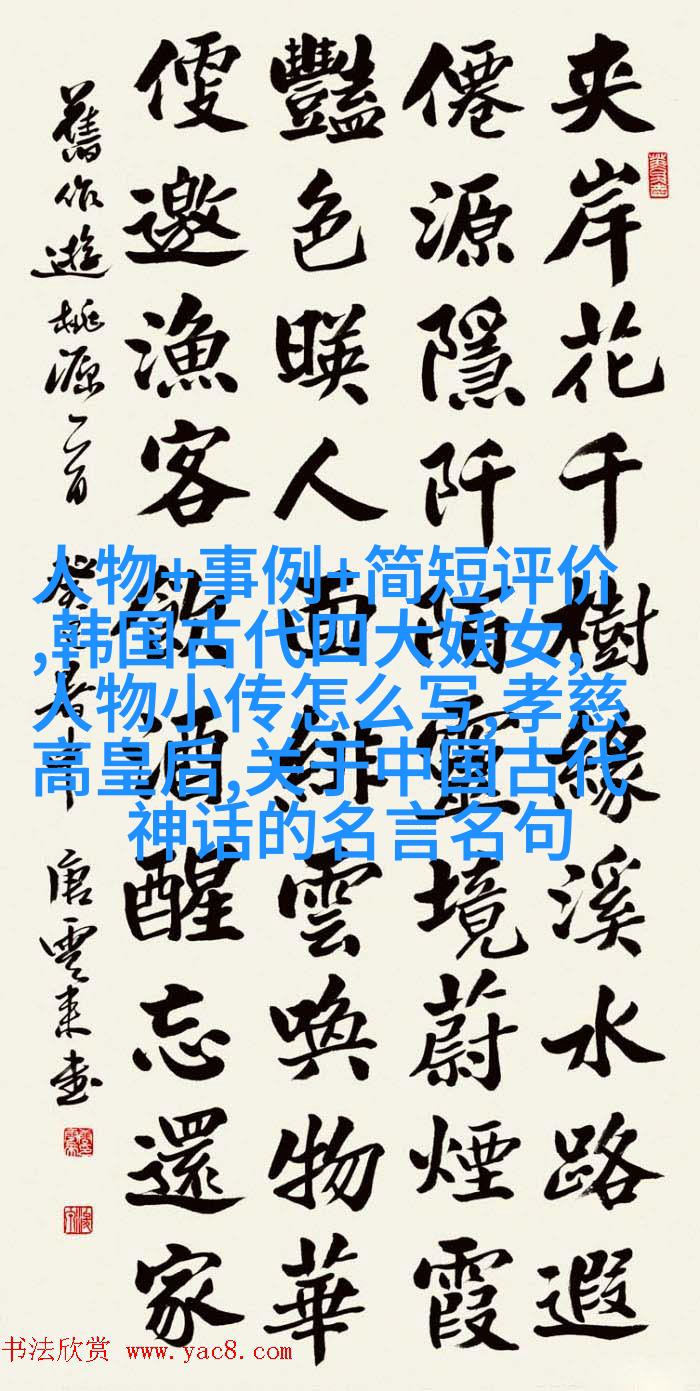 夾岸花千樹緣溪水路遐
僊源隱阡陌靈境蔚煙霞
豔色暎人面緋雲喚物華
便邀漁客飲酒醒忘還家
舊作遊桃源二首 癸巳春中 唐雲來書
人物+事例+简短评价
,韩国古代四大妖女,
人物小传怎么写,孝慈
高皇后,关于中国古代
神话的名言名句
书法欣赏 www.yac8.com